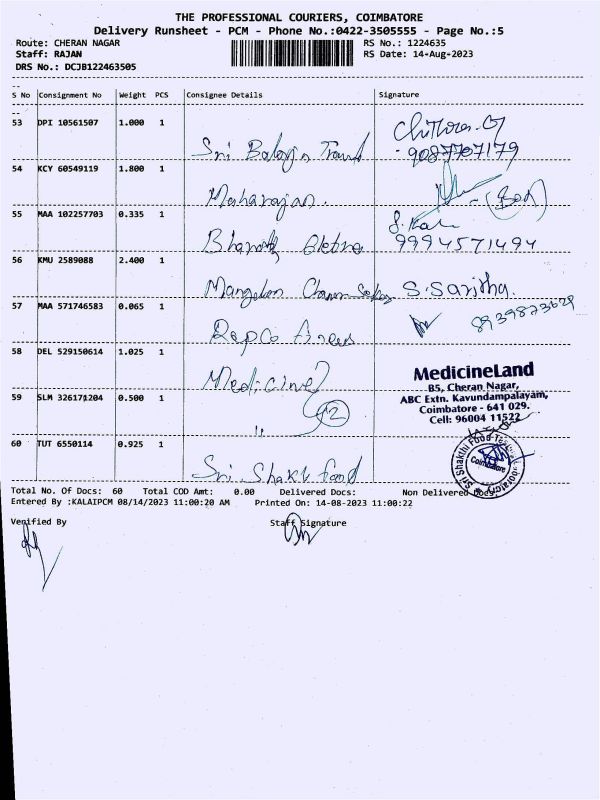 THE PROFESSIONAL COURIERS, COIMBATORE
Delivery Runsheet - PCM - Phone No.:0422-3505555 - Page No.:5
Route: CHERAN NAGAR RS No.: 1224635
Staff: RAJAN RS Date: 14-Aug-2023
DRS No.: DCJB122463505
S No Consignment No Weight PCS Consignee Details Signature
53 DPI 10561507 1.000 1
Sri Balaji Trand 9087707179
54 KCY 60549119 1.800 1
Maharajan.
55 MAA 102257703 0.335 1
Bharath 9994571494
56 KMU 2589088 2.400 1
S. Saritha
57 MAA 571746583 0.065 1
Repco 8939873629
58 DEL 529150614 1.025 1
Medicine
59 SLM 326171204 0.500 1
2
MedicineLand
B5, Cheran Nagar,
ABC Extn. Kavundampalayam,
Coimbatore - 641 029.
Cell: 96004 11522
60 TUT 6550114 0.925 1
Sri Shakti food
Sri Shakthi Food Testing Laboratory
Coimbatore
Total No. Of Docs: 60 Total COD Amt: 0.00 Delivered Docs: Non Delivered Docs:
Entered By :KALAIPCM 08/14/2023 11:00:20 AM Printed On: 14-08-2023 11:00:22
Verified By Staff Signature